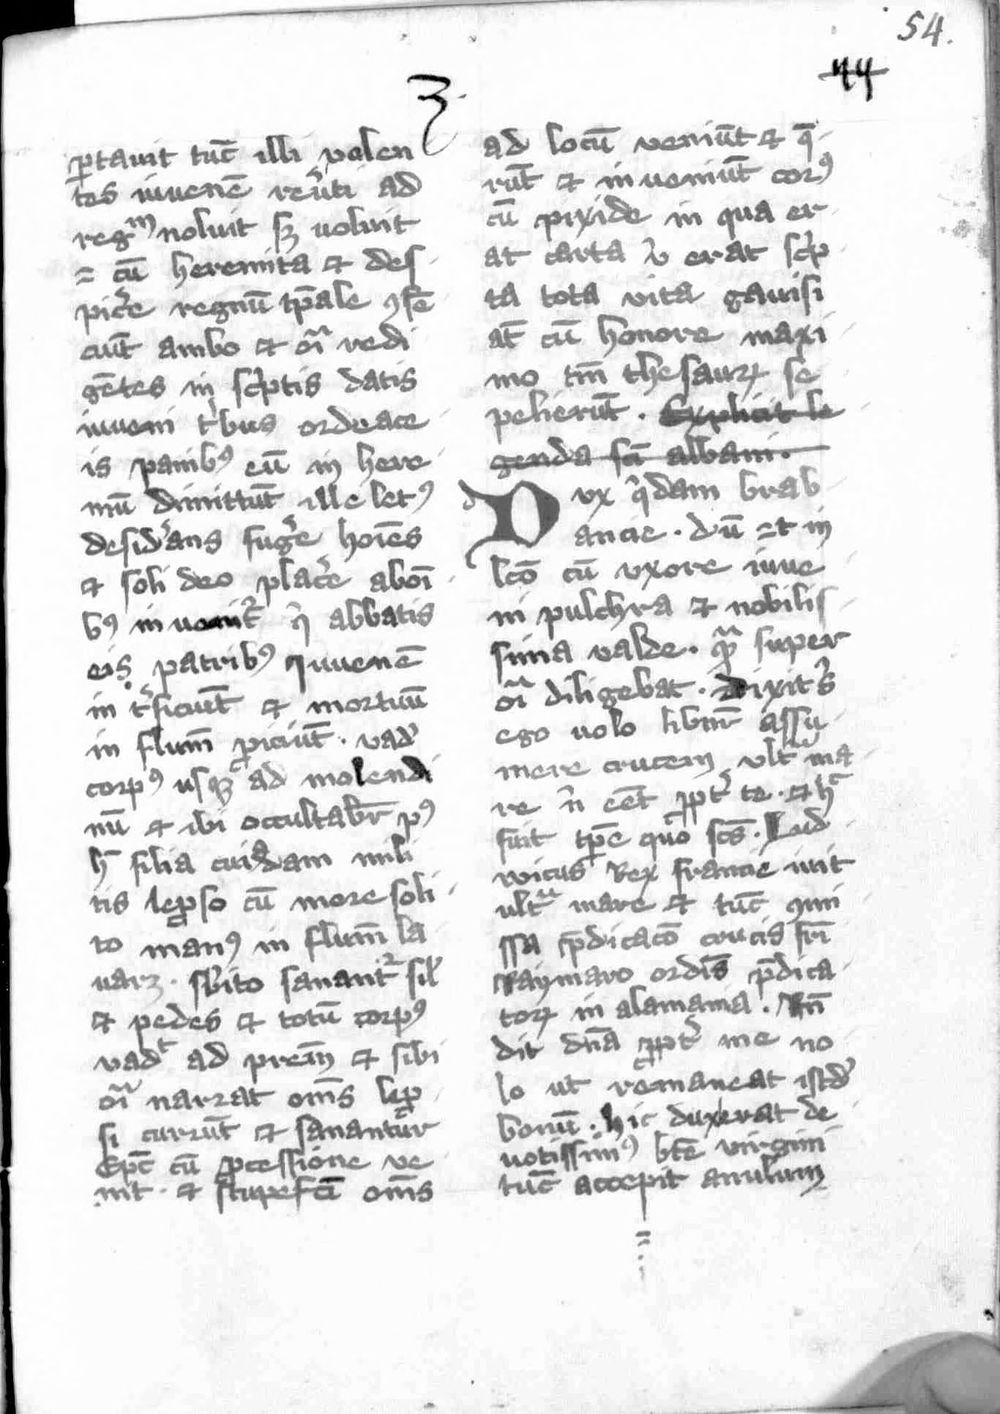 54.
44
3
ꝑtauit tūc illi volen
tes iuvenē reuͥti ad
regᵐ noluit sꝫ uoluit
= cū heremita ⁊ des
picͤe regnū tp̄ale ꝯfe
ciūt ambo ⁊ oīa redi
gētes in scͥptis datis
iuveni tͥbus ordeace
is panibꝰ eū in here
mū dimittūt ille letꝰ
desidͤans fugͤe hoīes
⁊ soli deo placͤe aboī
bꝰ invenitᷣ qͥ abbatis
eis patribꝰ Iuvenē
intͤficiūt ⁊ mortuū
in flum̄ ꝓiciūt. vadͭ
corpꝰ usqꝫ ad molendi
nū ⁊ ibi occultabͬ pꝰ
hͦ filia cuiꝰdam mili
tis lep̱so cū more soli
to manꝰ in flum̄ la
varꝫ. sbito sanantᷣ sil
⁊ pedes ⁊ totū corpꝰ
vadͭ ad prem̄ ⁊ sibi
oīa narrat om̄s lep̱
si currūt ⁊ sanantur
Ep̄c cū ꝓcessione ve
nit. ⁊ stupefcī om̄s
ad locū veniūt ⁊ q̄
rūt ⁊ inveniūt corꝰ
cū pixide in qua er
at carta uͥ erat scͥp
ta tota vita gavisi
at̄ cū honore maxi
mo tm̄ thesauꝝ se
pelierūt. Explicit le
genda scī albani.
Dvx qͥdam brab
ancie. dū =t in
lcō cū vxore iuve
ni pulchra ⁊ nobilis
sima valde. qᵃm super
oīa diligebat. dixitͤs
ego volo libnͬ assu
mere crucem vltᵃ ma
re nͥ eēt ꝓptͤ te. ⁊ hͨ
fuit tp̄e quo scs̄. Lud
wicus Rex francie ivit
ultᵃ mare ⁊ tūc ꝯmi
ssa p̄dicacō crucis frī
Raymaro ordīs p̄dica
toꝝ in alamania. Rn̄
dit dn̄a ꝓptͤ me no
lo ut remaneat istdͩ
bonū. hic duxerat de
votissimꝰ bt̄e virgini
tūc accepit anulum